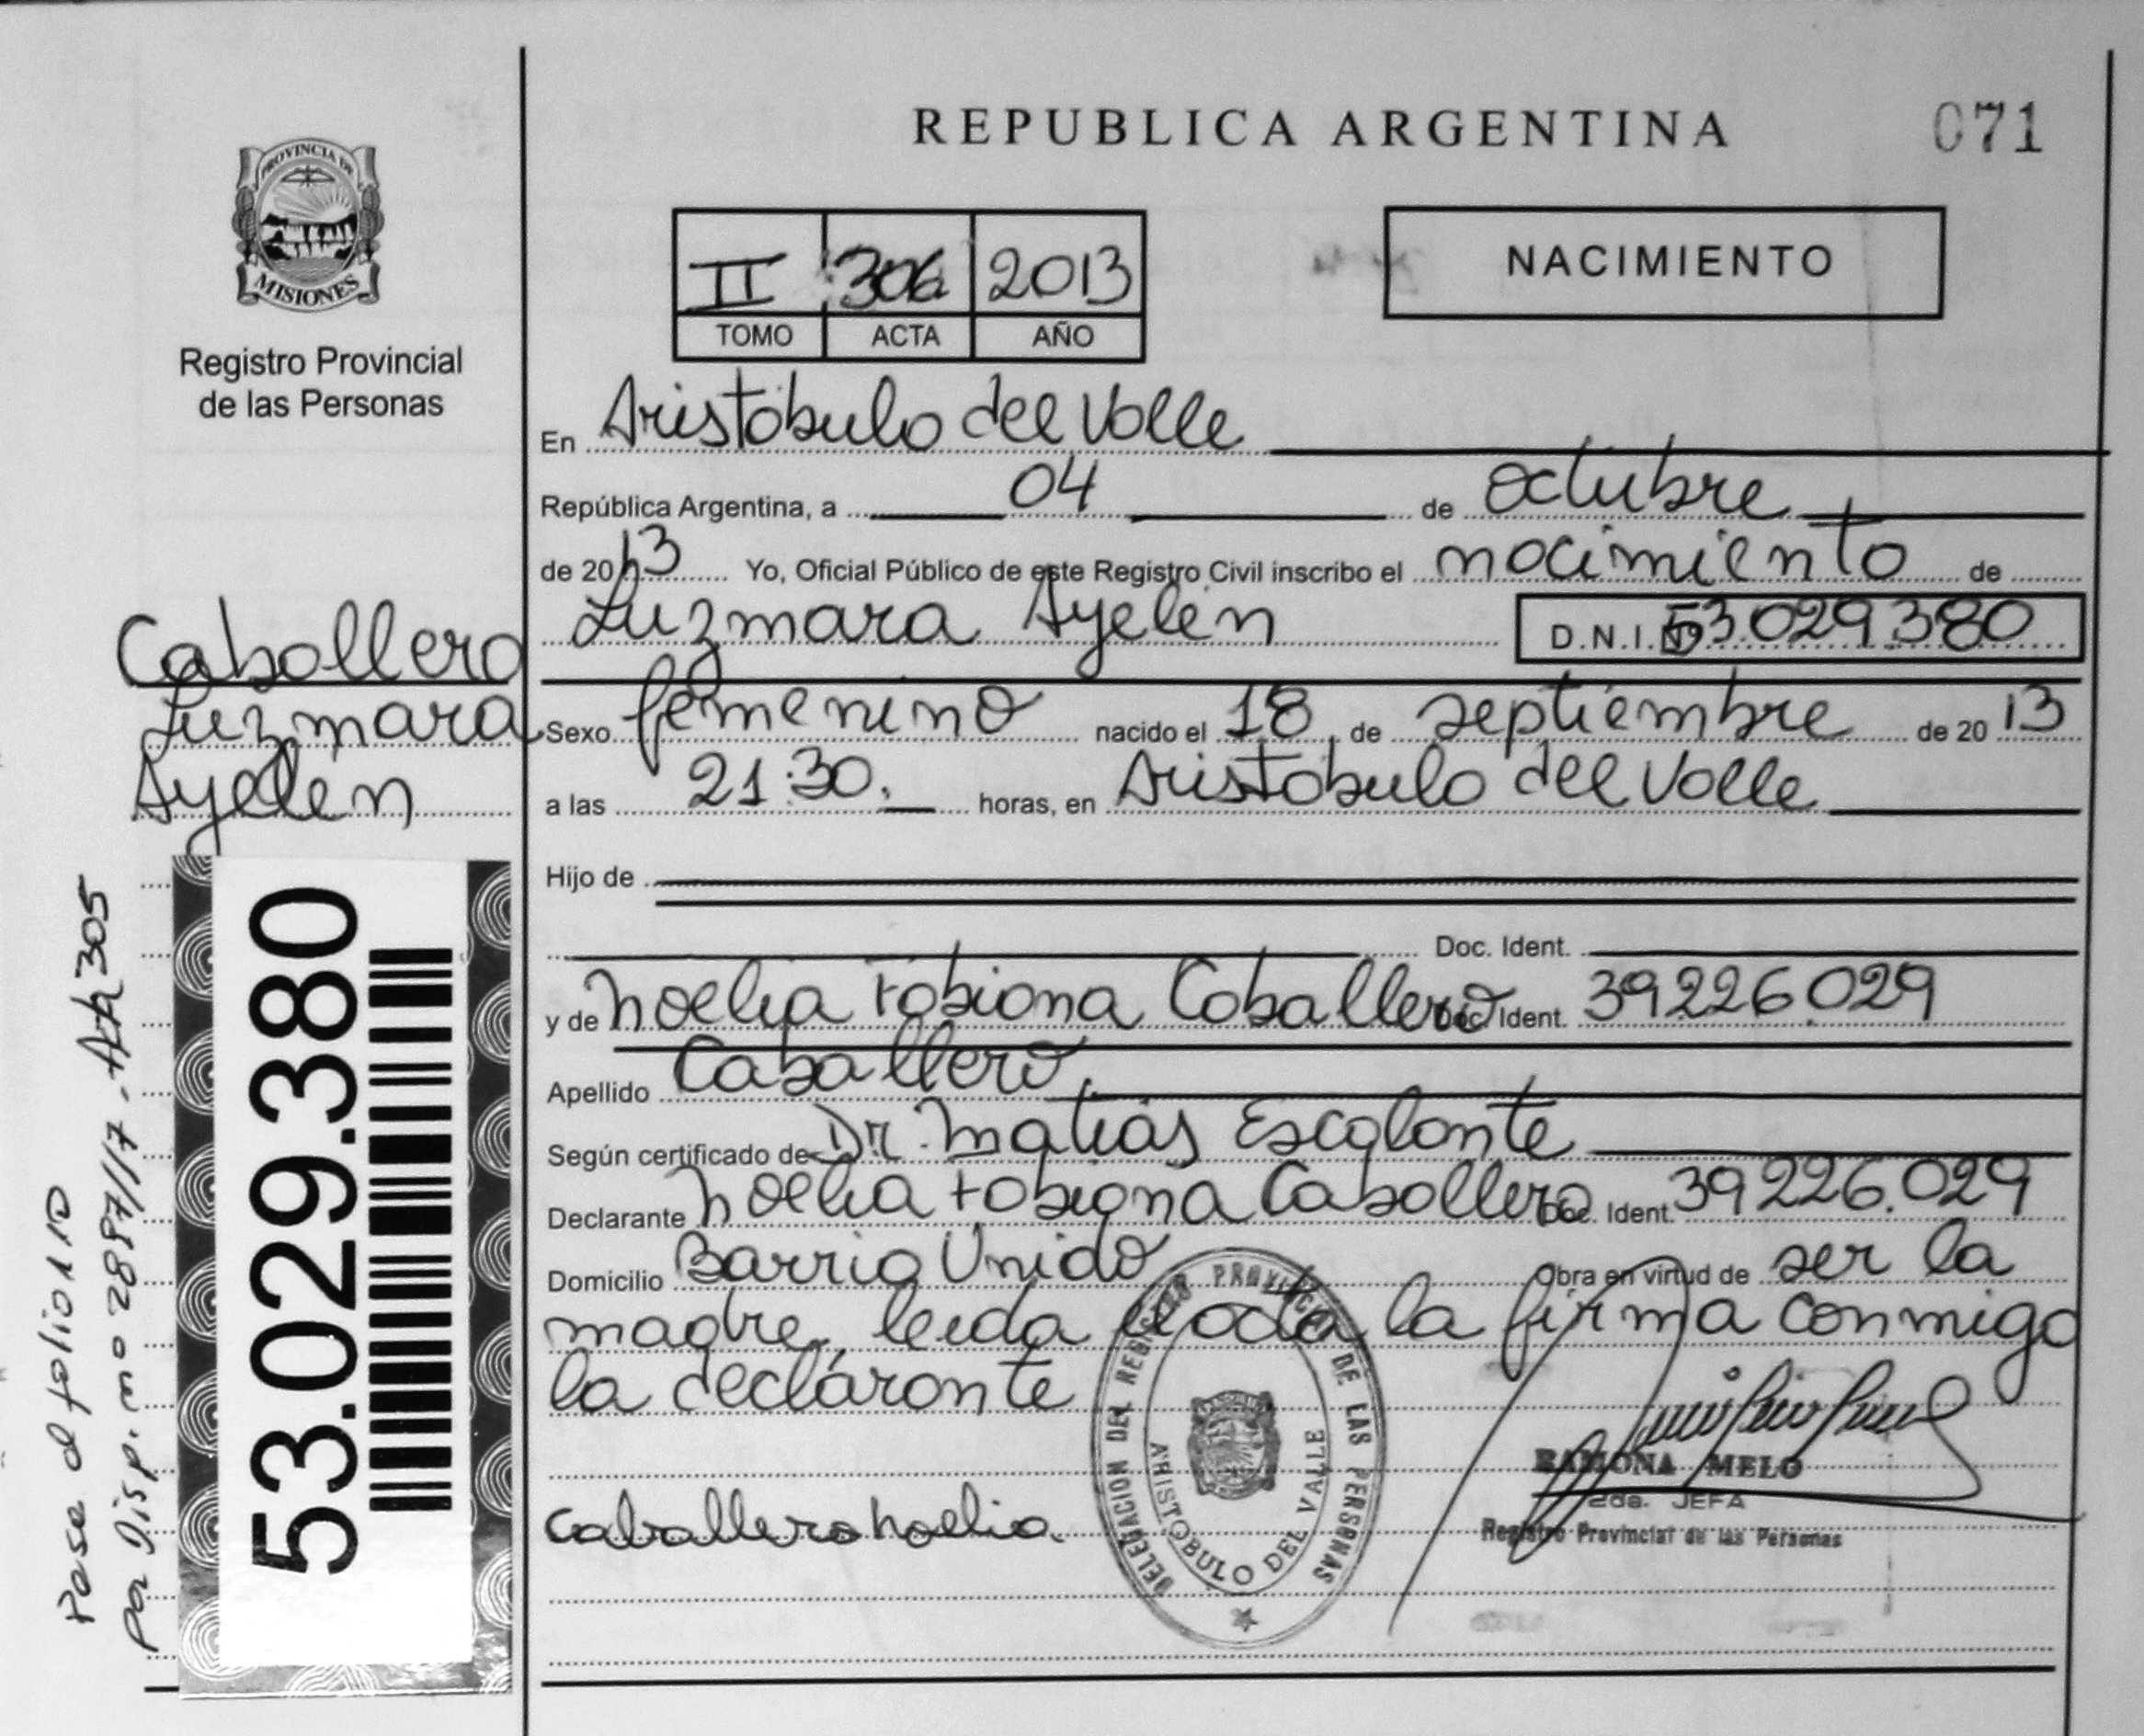 REPUBLICA ARGENTINA
071
PROVINCIA DE
MISIONES
Registro Provincial
de las Personas
II 306 2013
TOMO ACTA AÑO
NACIMIENTO
En Aristóbulo del Valle
República Argentina, a 04 de octubre
de 2013 Yo, Oficial Público de este Registro Civil inscribo el nacimiento de
Luzmara Ayelén D.N.I. Nº 53.029.380
Caballero
Luzmara
Ayelen
Sexo femenino nacido el 18 de septiembre de 2013
a las 21:30. horas, en Aristobulo del Valle
Hijo de
Doc. Ident.
y de Noelia Fabiana Caballero Doc. Ident. 39.226.029
Apellido Caballero
Según certificado de Dr. Matias Escalante
Declarante Noelia Fabiana Caballero Doc. Ident. 39226.029
Domicilio Barrio Unido Obra en virtud de ser la
madre, leida el acta, la firma conmigo
la declarante
Caballero Noelia.
DELEGACION DEL REGISTRO PROVINCIAL DE LAS PERSONAS
ARISTOBULO DEL VALLE
RAMONA MELO
2da. JEFA
Registro Provincial de las Personas
53.029.380
Pase al folio
Por Disp. nº 2887/17 - Acta 305